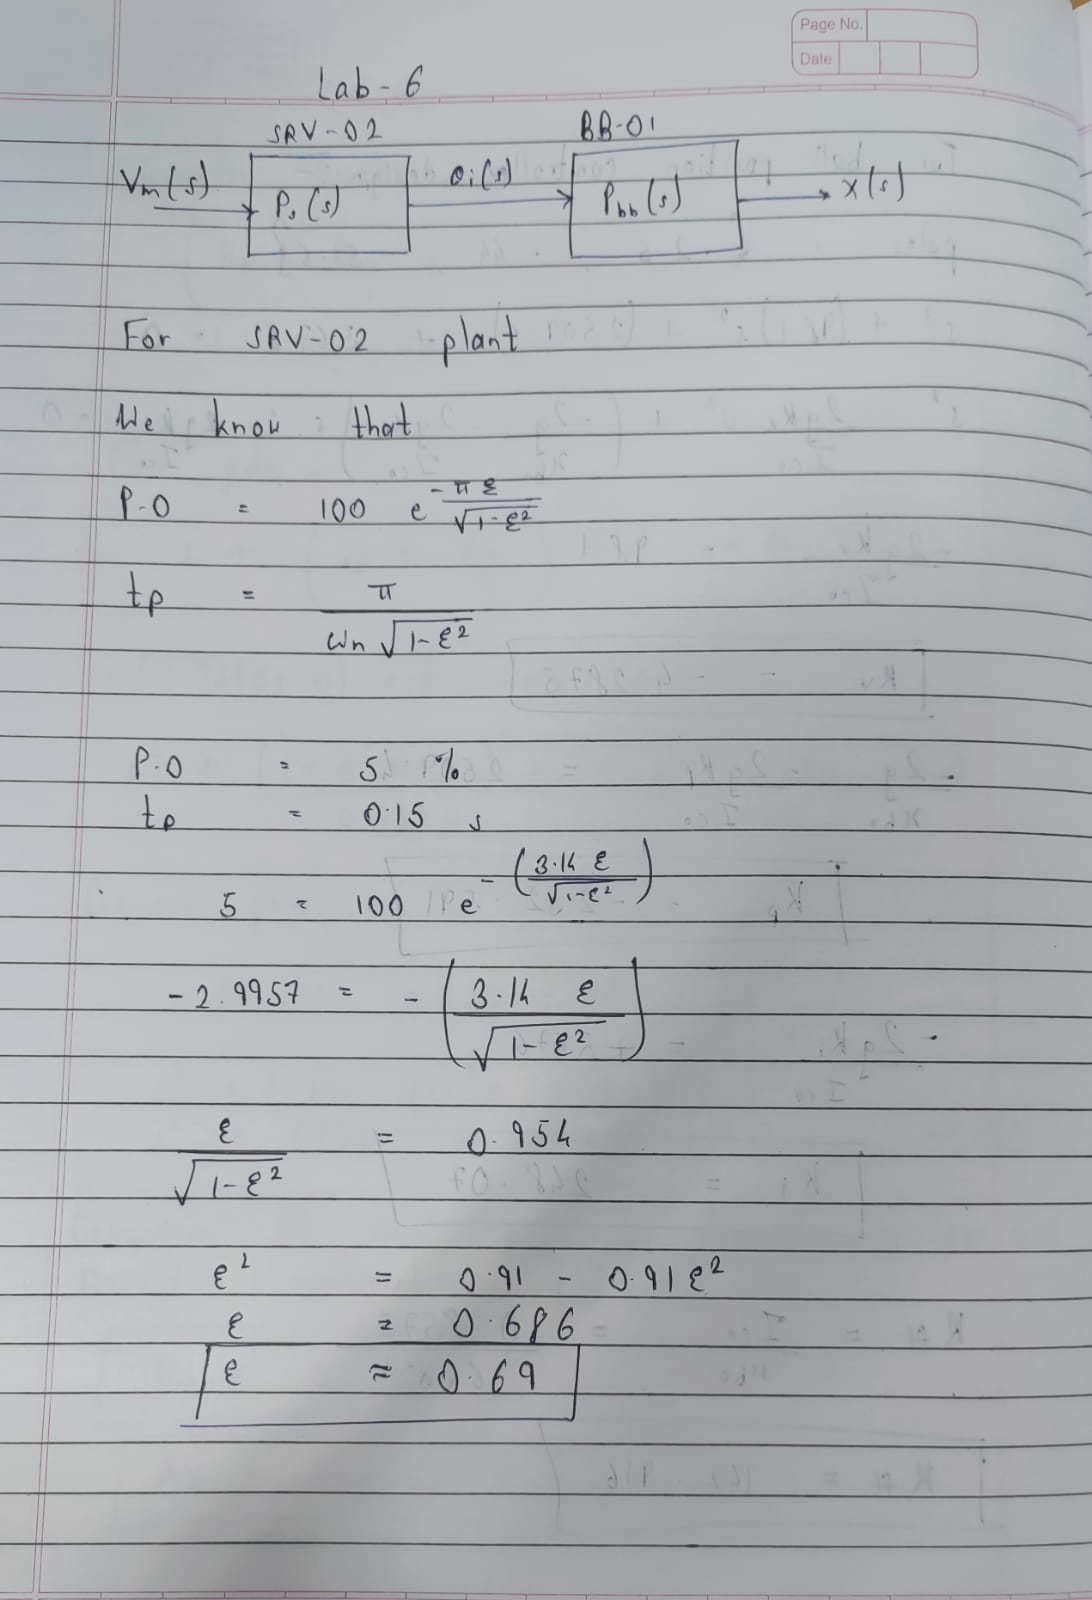 Page No.
Date
Lab - 6
SRV-02 BB-01
Vm(s) Ps(s) θi(s) Pbb(s) X(s)
For SRV-02 plant
We know that
P.O = 100 e^(-πξ/√(1-ξ²))
tp = π/(ωn √(1-ξ²))
P.O = 5 %
tp = 0.15 s
5 = 100 e^-(3.14 ξ/√(1-ξ²))
-2.9957 = -(3.14 ξ/√(1-ξ²))
ξ/√(1-ξ²) = 0.954
ξ² = 0.91 - 0.91 ξ²
ξ = 0.686
ξ ≈ 0.69